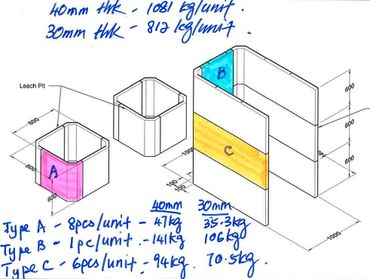 40mm thk - 1081 kg/unit.
30mm thk - 812 kg/unit.
Leach Pit
800
800
600
600
600
A
B
C
1000
40mm 30mm
Type A - 8pcs/unit - 47kg 35.3kg
Type B - 1pc/unit - 141kg 106kg
Type C - 6pcs/unit - 94kg 70.5kg